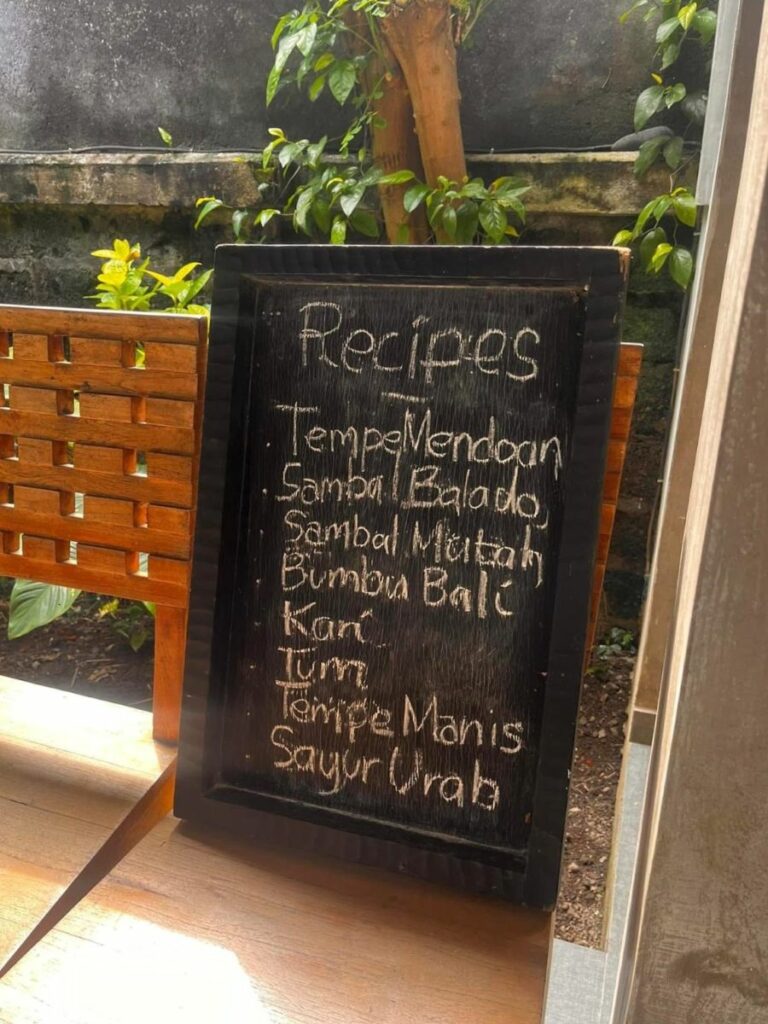 Recipes
Tempe Mendoan
Sambal Balado,
Sambal Matah
Bumbu Bali
Kari
Tum
Tempe Manis
Sayur Urab